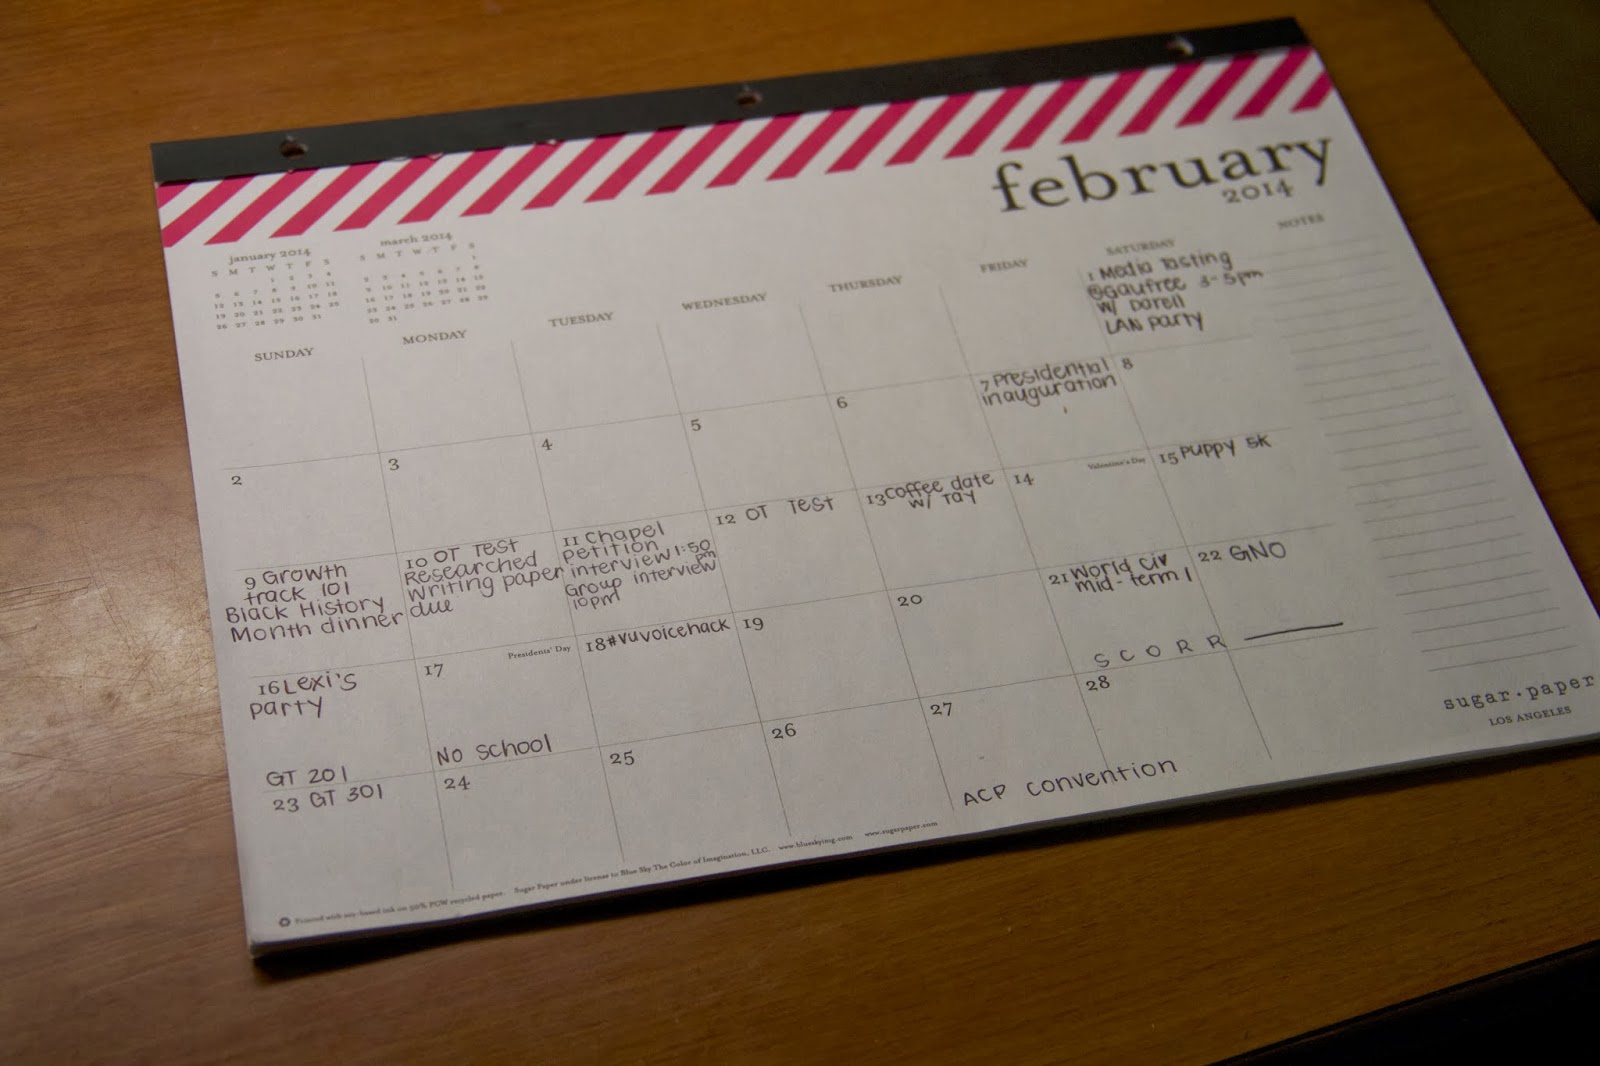 february
2014
january 2014
S M T W T F S
1 2 3 4
5 6 7 8 9 10 11
12 13 14 15 16 17 18
19 20 21 22 23 24 25
26 27 28 29 30 31
march 2014
S M T W T F S
1
2 3 4 5 6 7 8
9 10 11 12 13 14 15
16 17 18 19 20 21 22
23 24 25 26 27 28 29
30 31
SUNDAY
MONDAY
TUESDAY
WEDNESDAY
THURSDAY
FRIDAY
SATURDAY
NOTES
1 Media Tasting
@Gaufree 3-5pm
w/ Darell
LAN party
2
3
4
5
6
7 Presidential
inauguration
8
9 Growth
track 101
Black History
Month dinner
10 OT Test
Researched
Writing paper
due
11 Chapel
petition
interview 1:50
pm
Group interview
10pm
12 OT Test
13 Coffee date
w/ Tay
14
Valentine's Day
15 Puppy 5K
16 Lexi's
party
GT 201
17
Presidents' Day
No School
18 #vuvoicehack
19
20
21 World Civ
mid-term 1
S C O R R
22 GNO
23 GT 301
24
25
26
27
28
ACP Convention
sugar.paper
LOS ANGELES
Printed with soy-based ink on 50% PCW recycled paper. Sugar Paper under license to Blue Sky The Color of Imagination, LLC. www.blueskyimg.com www.sugarpaper.com